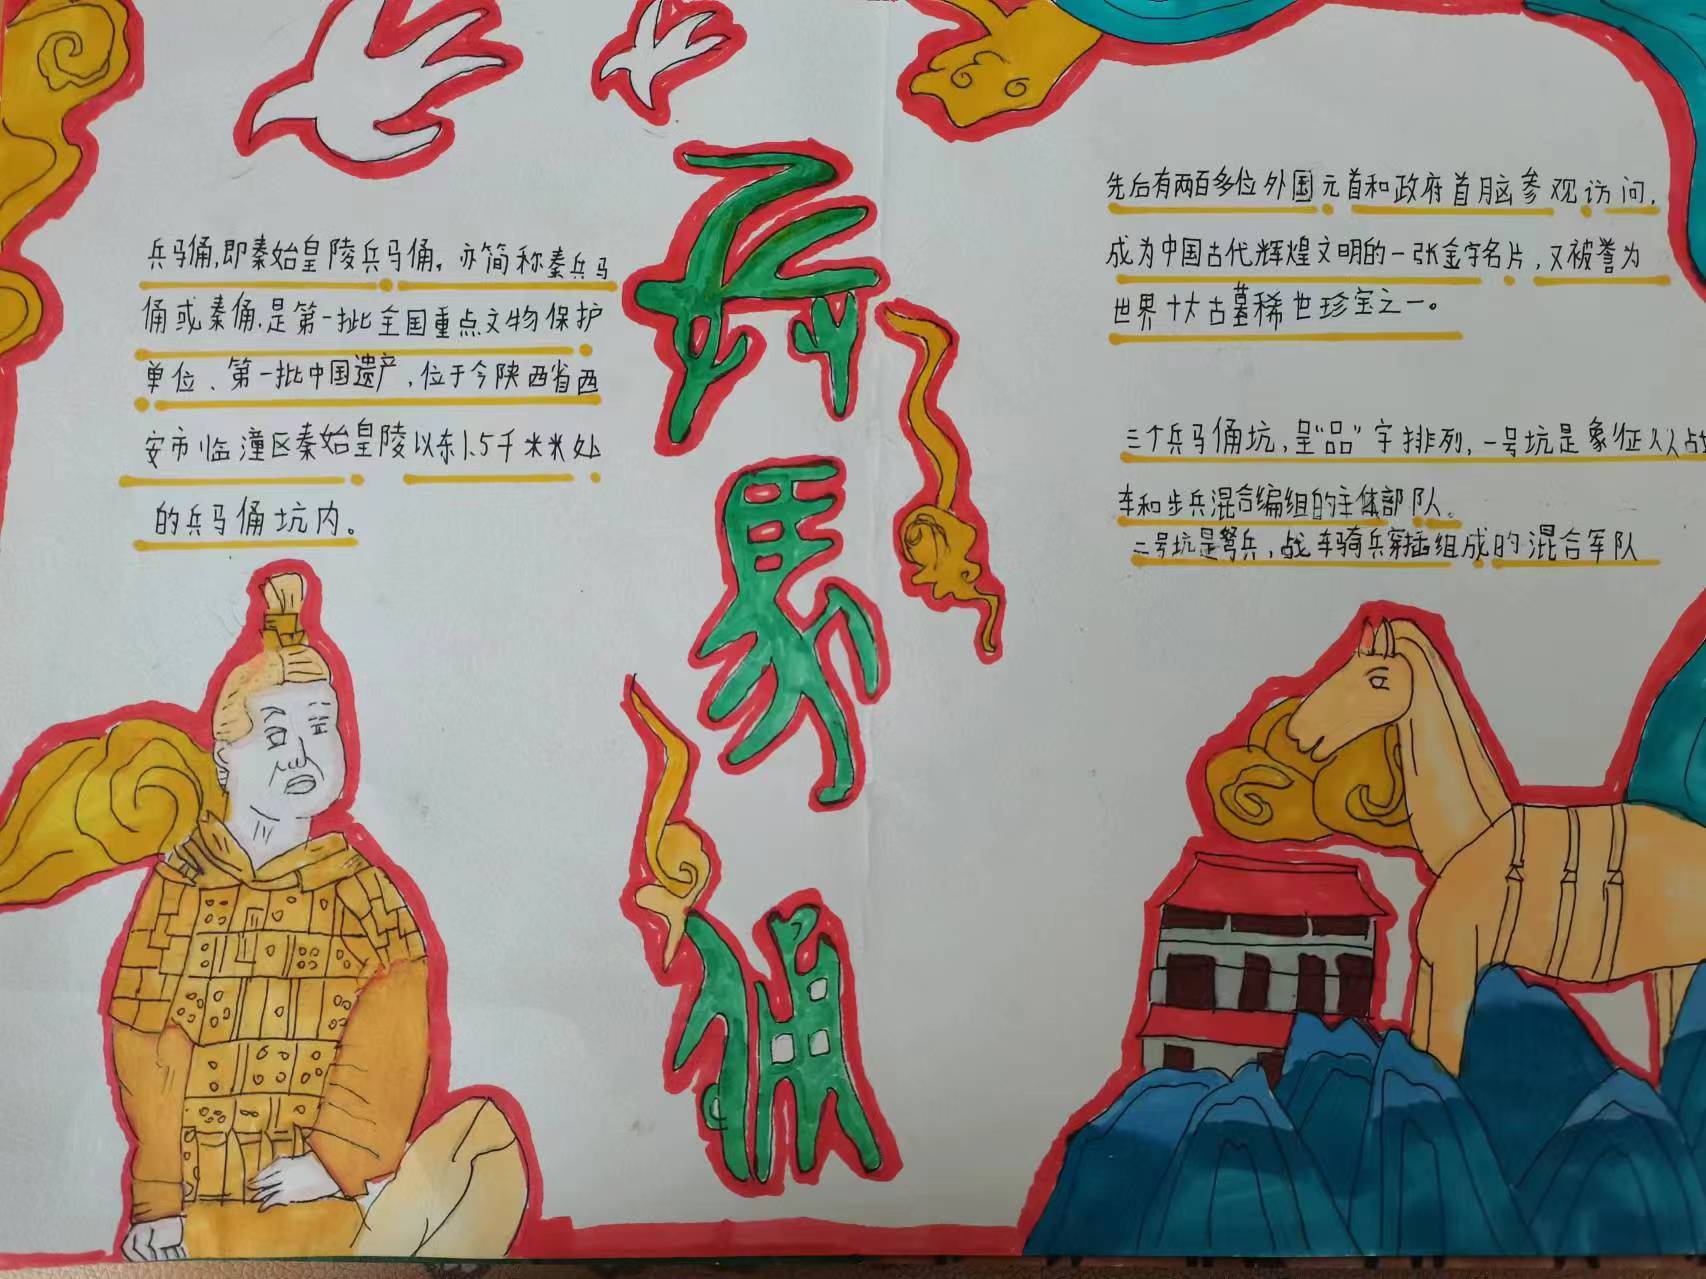 兵马俑,即秦始皇陵兵马俑，亦简称秦兵马
俑或秦俑,是第一批全国重点文物保护
单位、第一批中国遗产,位于今陕西省西
安市临潼区秦始皇陵以东1.5千米米处
的兵马俑坑内。
兵
馬
俑
先后有两百多位外国元首和政府首脑参观访问,
成为中国古代辉煌文明的一张金字名片,又被誉为
世界十大古墓稀世珍宝之一。
三个兵马俑坑,呈“品”字排列,一号坑是象征
车和步兵混合编组的主体部队。
二号坑是弩兵,战车骑兵穿插组成的混合军队